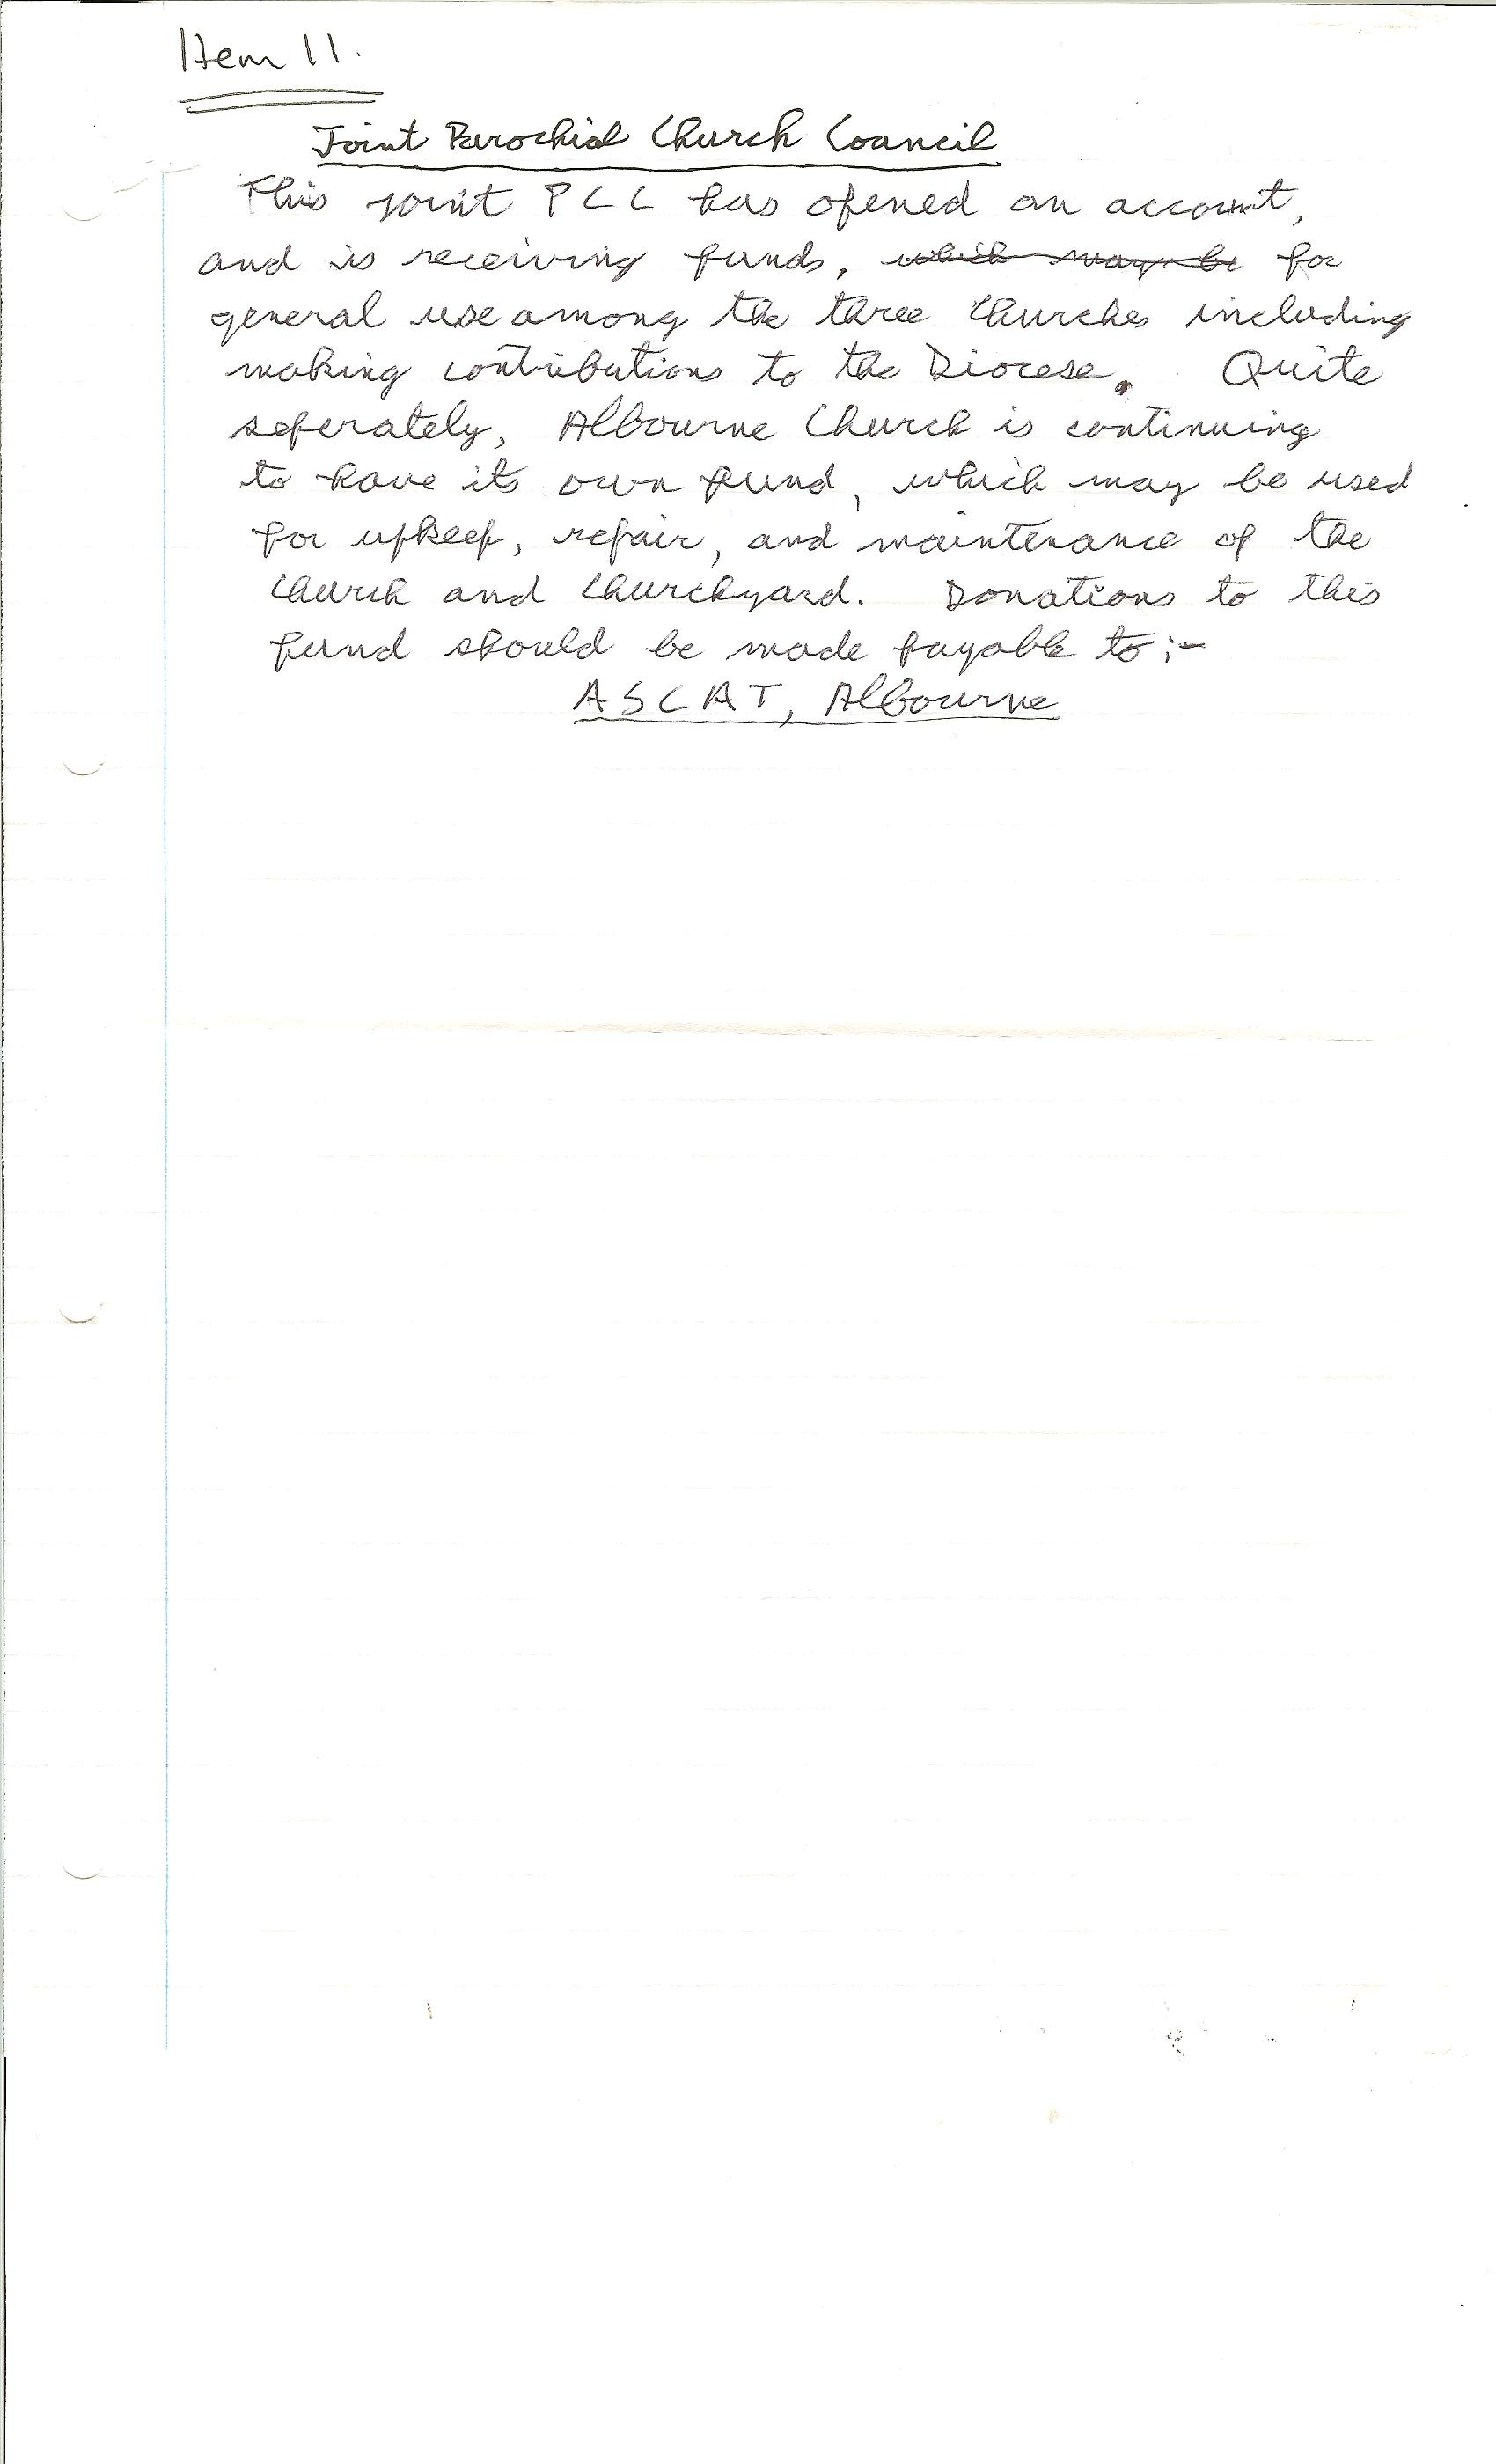 Item 11.
Joint Parochial Church Council
This joint PCC has opened an account,
and is receiving funds, which may be for
general use among the three Churches including
making contributions to the Diocese. Quite
seperately, Albourne Church is continuing
to have its own fund, which may be used
for upkeep, repair, and maintenance of the
Church and Churchyard. Donations to this
fund should be made payable to :-
ASCAT, Albourne